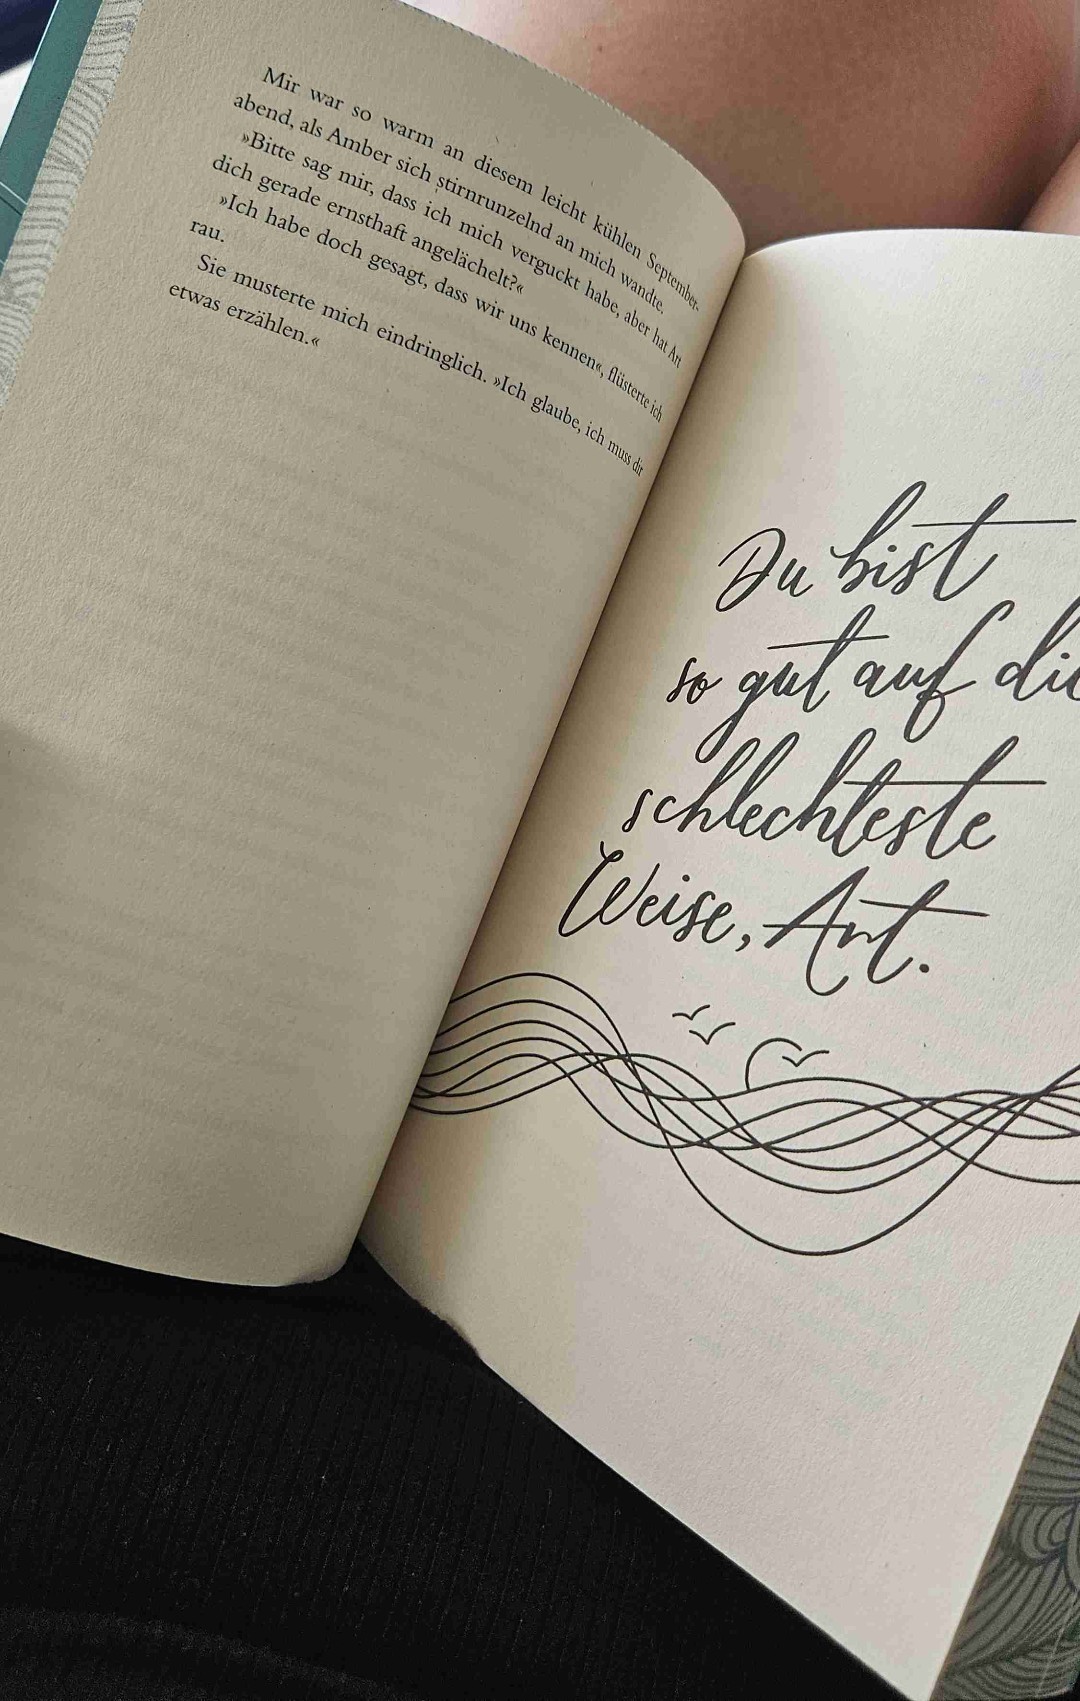 Mir war so warm an diesem leicht kühlen September-
abend, als Amber sich stirnrunzelnd an mich wandte.
»Bitte sag mir, dass ich mich verguckt habe, aber hat Art
dich gerade ernsthaft angelächelt?«
»Ich habe doch gesagt, dass wir uns kennen«, flüsterte ich
rau.
Sie musterte mich eindringlich. »Ich glaube, ich muss dir
etwas erzählen.«
Du bist
so gut auf die
schlechteste
Weise, Art.